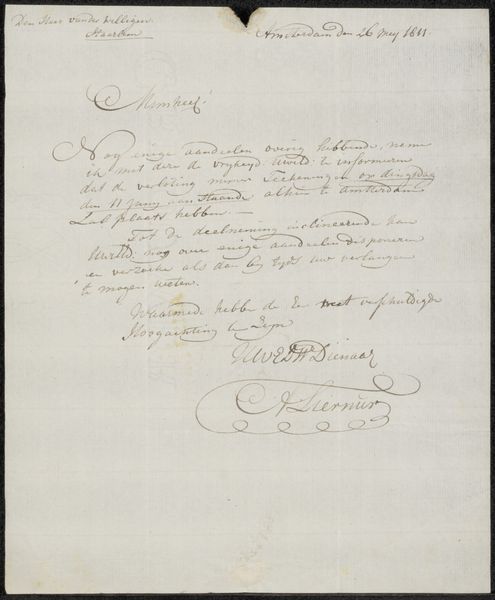 Den Heer van der Willigen
Haarlem
Amsterdam den 26 Mey 1811
Mynheer!
Nog enige aandeelen overig hebbende, neme
ik met deze de vryheyd UWEd: te informeren
dat de verloting myner Teekeningen op dingsdag
den 11 Juny aanstaande alhier te Amsterdam
Zal plaats hebben.—
Tot de deelneming inclinerende kan
UWEd: nog over enige aandeelen disponeren
en verzoeke als dan by tyds uw verlangen
te mogen weten.
Waarmede hebbe de Eer met verschuldigde
Hoogachting te Zyn
UWEDW Dienaar
A Liernur